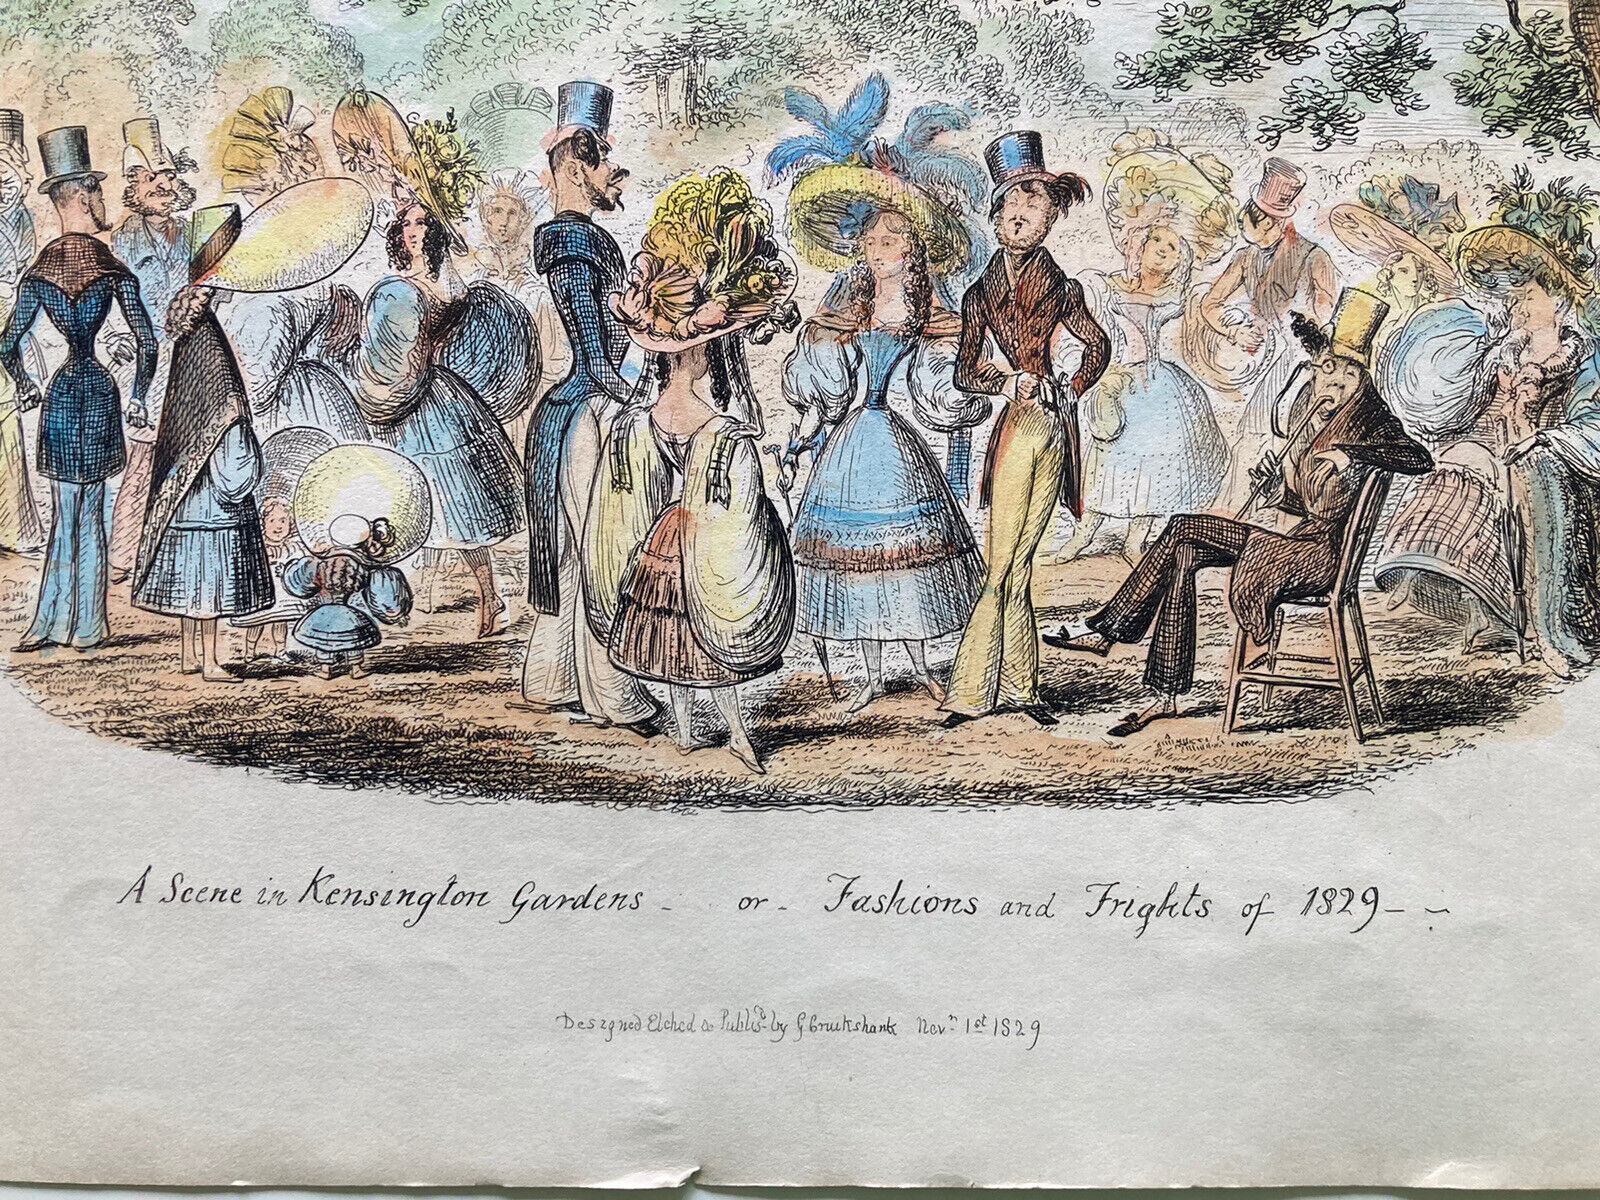 A Scene in Kensington Gardens - or - Fashions and Frights of 1829 - -
Designed Etched & Publisd by G Cruikshank Novr 1st 1829